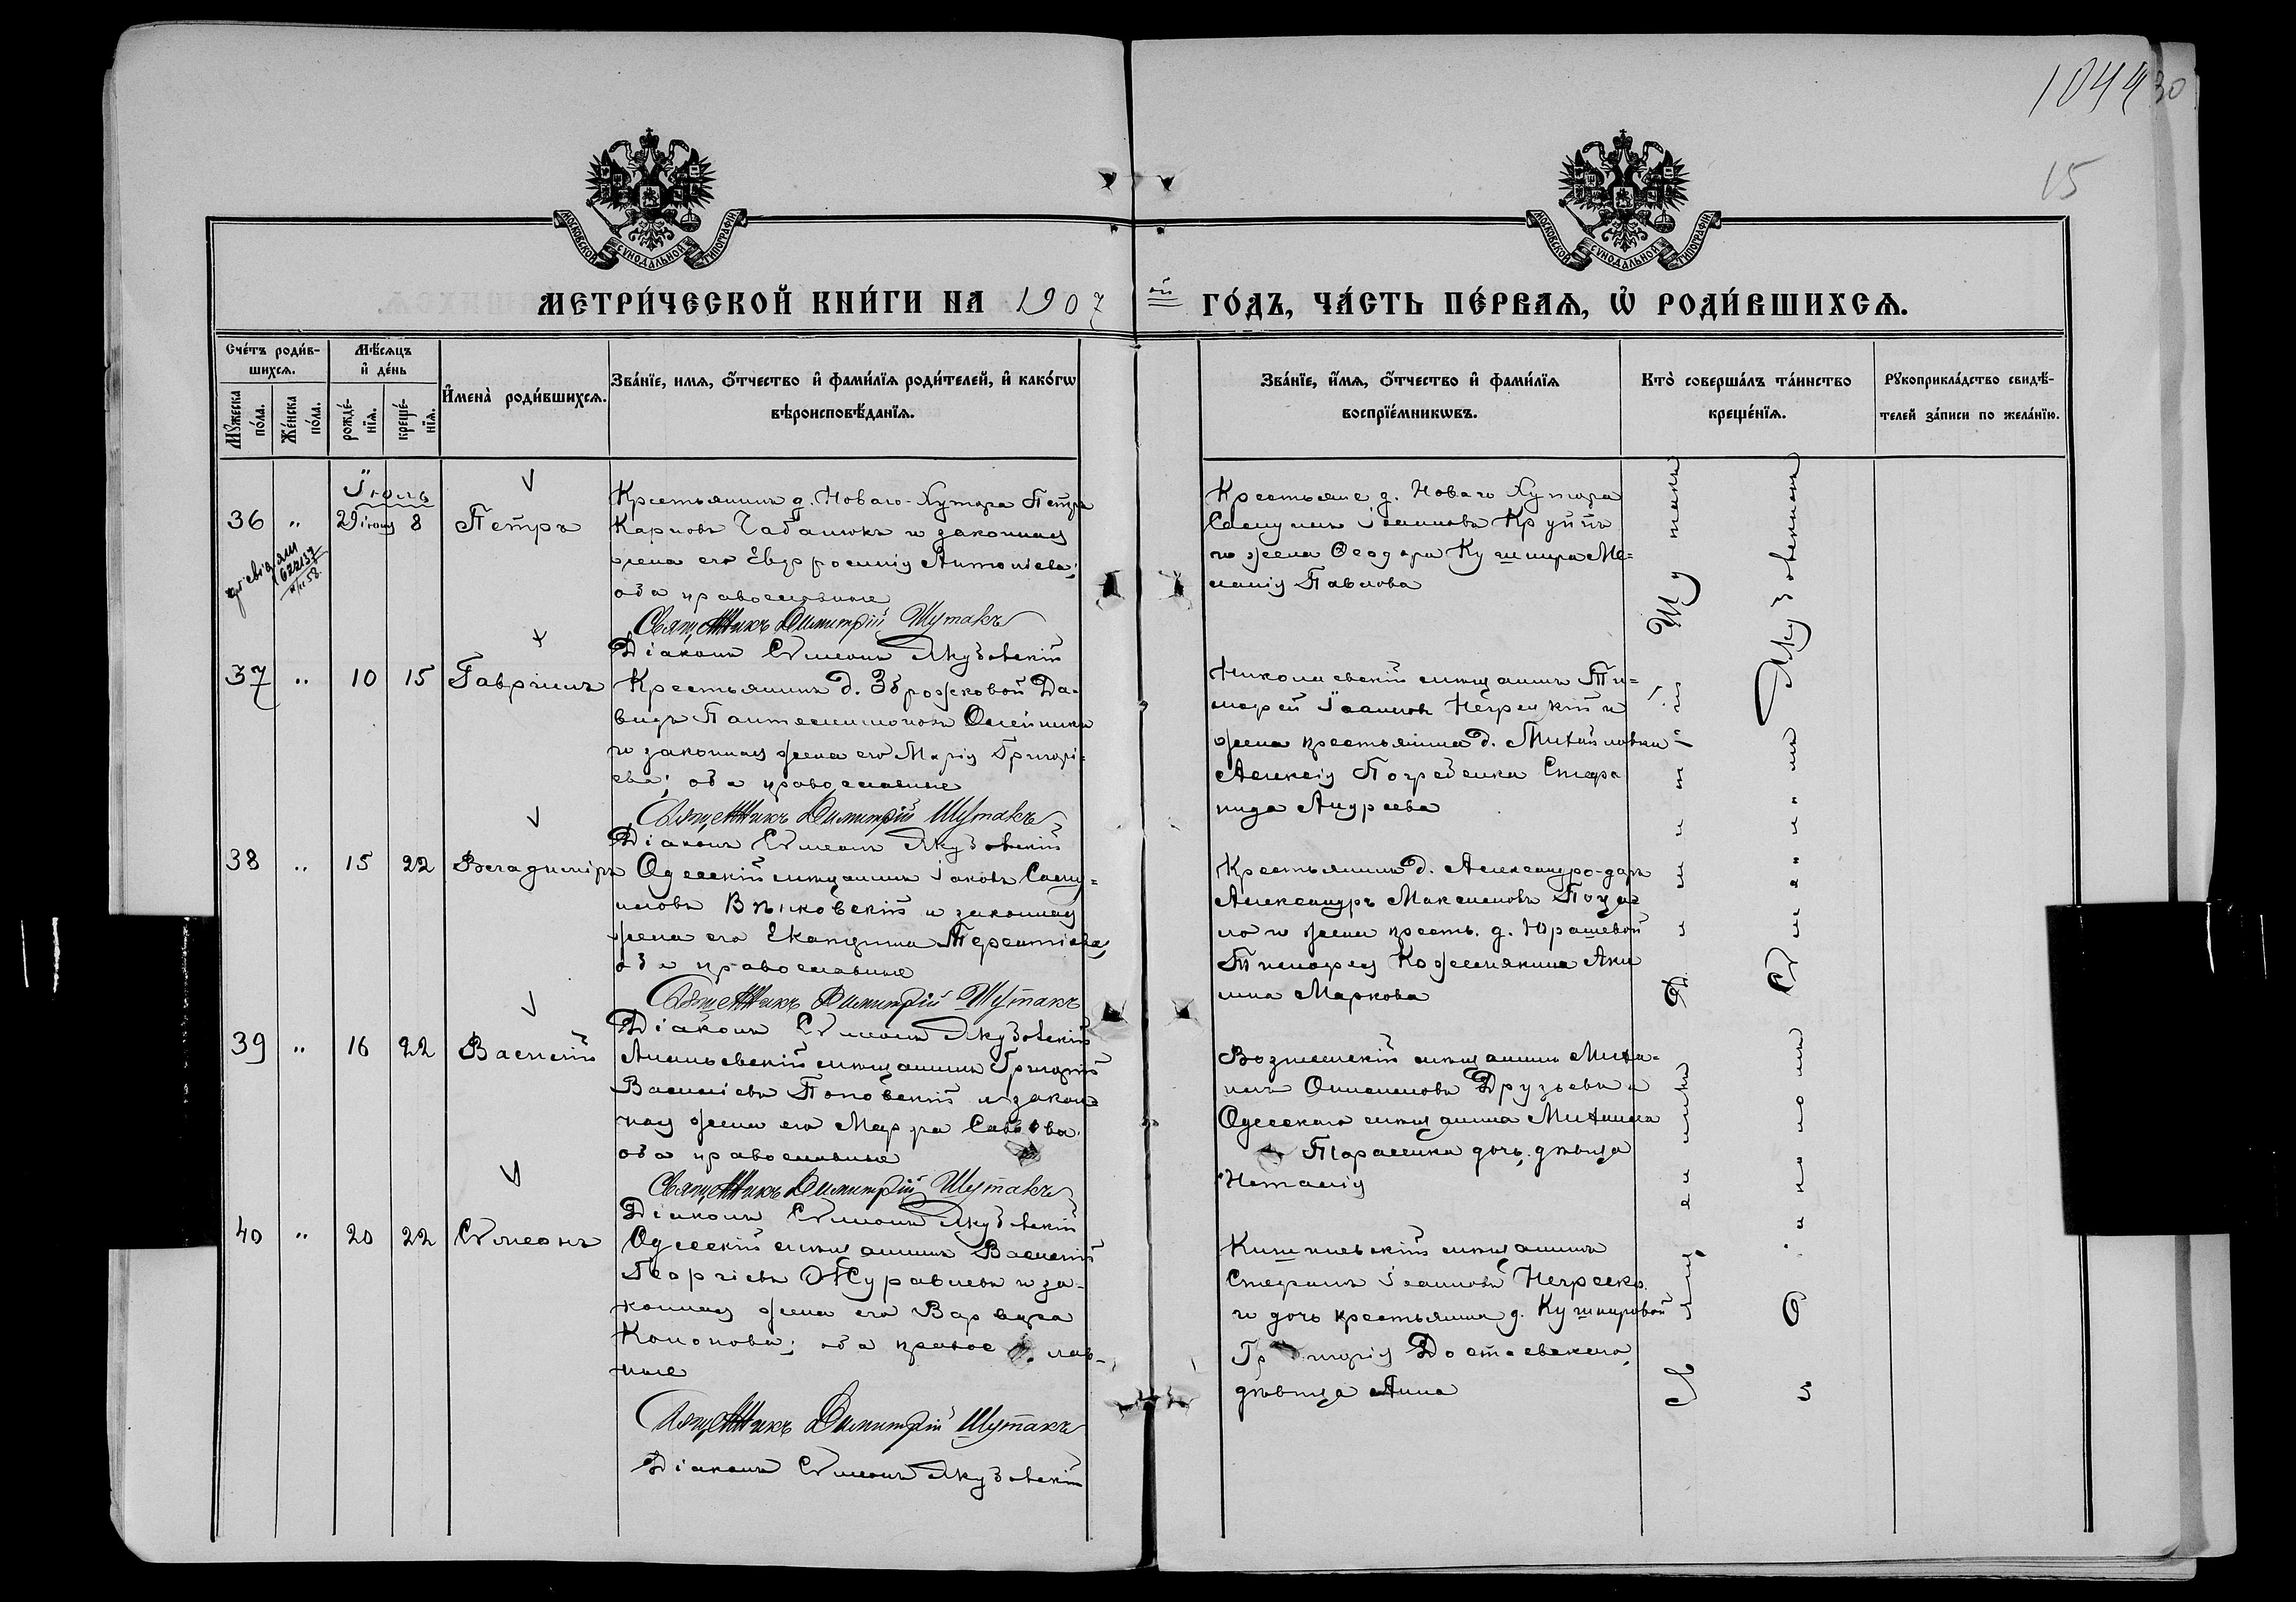 1044 30
15
МОСКОВСКОЙ СУНОДАЛЬНОЙ ТИПОГРАФІИ
МОСКОВСКОЙ СУНОДАЛЬНОЙ ТИПОГРАФІИ
МЕТРИ́ЧЕСКОЙ КНИ́ГИ НА 1907
ой ГО́ДЪ, ЧА́СТЬ ПЕ́РВАѦ, Ѡ҆ РОДИ́ВШИХСѦ.
Сче́тъ роди́в-
шихсѧ.
Мѣ́сѧцъ
и҆ де́нь
Мꙋ́жеска по́ла.
Же́нска по́ла.
рожде́-нїѧ.
креще́-нїѧ.
И҆мена̀ роди́вшихсѧ.
Зва́нїе, имѧ, ѻ҆́тчество и҆ фами́лїѧ роди́телей, и҆ како́гѡ
вѣроисповѣ́данїѧ.
Зва́нїе, и҆́мѧ, ѻ҆́тчество и҆ фами́лїѧ
воспрїе́мникѡвъ.
Кто̀ соверша́лъ та́инство
креще́нїѧ.
Рꙋкоприкла́дство свидѣ́-
телей за́писи по жела́нїю.
Іюль
36 " 29 іюня 8 Петръ
Крестьянинъ д. Новаго-Хутора Петръ
Карповъ Чабанюкъ и законная
жена его Евфросинія Антоніева;
оба православные
Священникъ Димитрій Шутакъ
Діаконъ Сѵмеонъ Якубовскій
Крестьяне д. Новаго Хутора
Самуилъ Іоанновъ Круппъ
и жена Ѳеодора Кушнира Ме-
ланія Павлова
622137
37 " 10 15 Гавріилъ
Крестьянинъ д. Зброжковой Да-
видъ Пантелеимоновъ Олейникъ
и законная жена его Марія Григорі-
ева; оба православные
Священникъ Димитрій Шутакъ
Діаконъ Сѵмеонъ Якубовскій
Николаевскій мѣщанинъ Ти-
моѳей Іоанновъ Негрецкій и
жена крестьянина д. Михайловки
Алексія Погребенка Стефа
нида Андреева
38 " 15 22 Владиміръ
Одесскій мѣщанинъ Іаковъ Саму-
иловъ Вѣнковскій и законная
жена его Екатерина Терентіева,
оба православные
Священникъ Димитрій Шутакъ
Діаконъ Сѵмеонъ Якубовскій
Крестьянинъ д. Александро-дарь
Александръ Максимовъ
и жена кресть. д. Юрашевой
Тимоѳея Кожемякина Аки
лина Маркова
39 " 16 22 Василій
Ананьевскій мѣщанинъ Григорій
Василіевъ Поповскій и закон-
ная жена его Марѳа Саввова.
оба православные
Священникъ Димитрій Шутакъ
Діаконъ Сѵмеонъ Якубовскій
Вознесенскій мѣщанинъ Миха-
илъ Онисимовъ Друзьевъ и
Одесскаго мѣщанина Михаила
Тарасенка дочь, дѣвица
Наталія
40 " 20 22 Сѵмеонъ
Одесскій мѣщанинъ Василій
Георгіевъ Журавлевъ и за-
конная жена его Варвара
Кононова; оба правос лав-
ные
Священникъ Димитрій Шутакъ
Діаконъ Сѵмеонъ Якубовскій
Кишиневскій мѣщанинъ
Стефанъ Іоанновъ Негреско
и дочь крестьянина д. Кушнировой
Григорія Достаевскаго,
дѣвица Анна
Священникъ Димитрій Шутакъ
съ діакономъ Сѵмеономъ Якубовскимъ